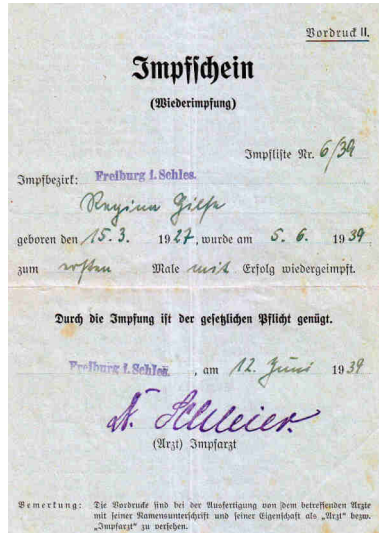 Vordruck II.
Impfschein
(Wiederimpfung)
Impfliste Nr. 6/39
Impfbezirk: Freiburg i. Schles.
Regina Hilse
geboren den 15. 3. 1927, wurde am 5. 6. 1939
zum ersten Male mit Erfolg wiedergeimpft.
Durch die Impfung ist der gesetzlichen Pflicht genügt.
Freiburg i. Schles., am 12. Juni 1939
Dr. Schleier.
(Arzt) Impfarzt
Bemerkung: Die Vordrucke sind bei der Ausfertigung von dem betreffenden Arzte
mit seiner Namensunterschrift und seiner Eigenschaft als „Arzt" bezw.
„Impfarzt" zu versehen.